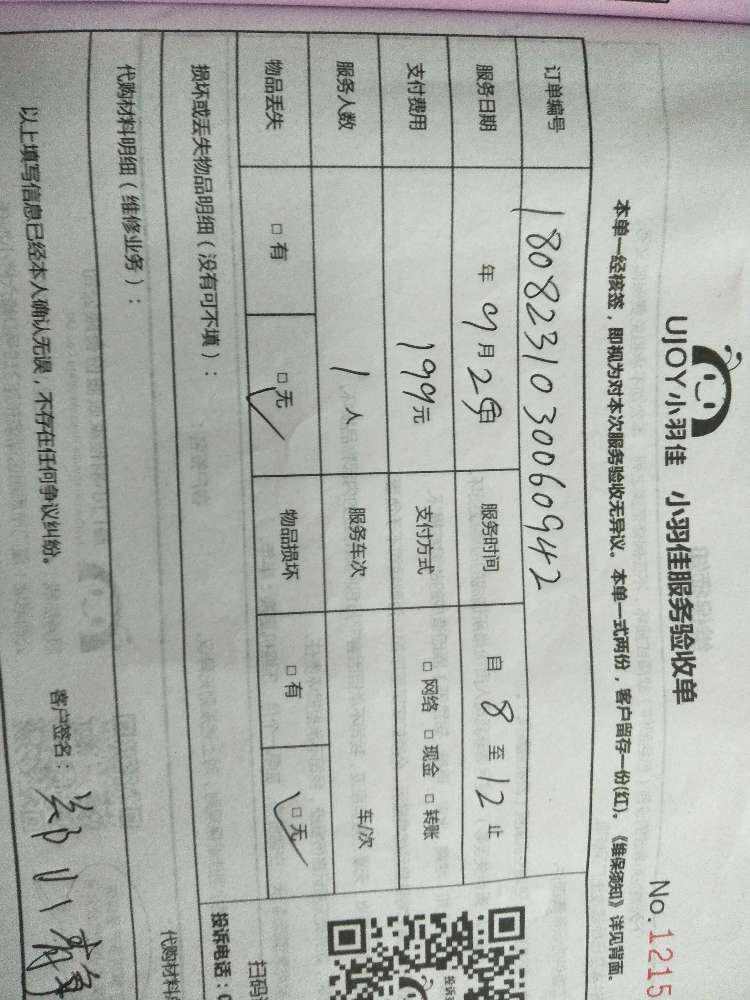 UJOY小羽佳 小羽佳服务验收单
No. 1215
本单一经核签，即视为对本次服务验收无异议。本单一式两份，客户留存一份(红)。《维保须知》详见背面。
订单编号 1808231030060942
服务日期 年 9月29日 服务时间 自 8 至 12 止
支付费用 199元 支付方式 □ 网络 □ 现金 □ 转账
服务人数 1 人 服务车次 车/次
物品丢失 □ 有 □ 无 物品损坏 □ 有 □ 无
损坏或丢失物品明细（没有可不填）：
投诉电话：
扫码
代购材料明细（维修业务）：
代购材料
以上填写信息已经本人确认无误，不存在任何争议纠纷。 客户签名：